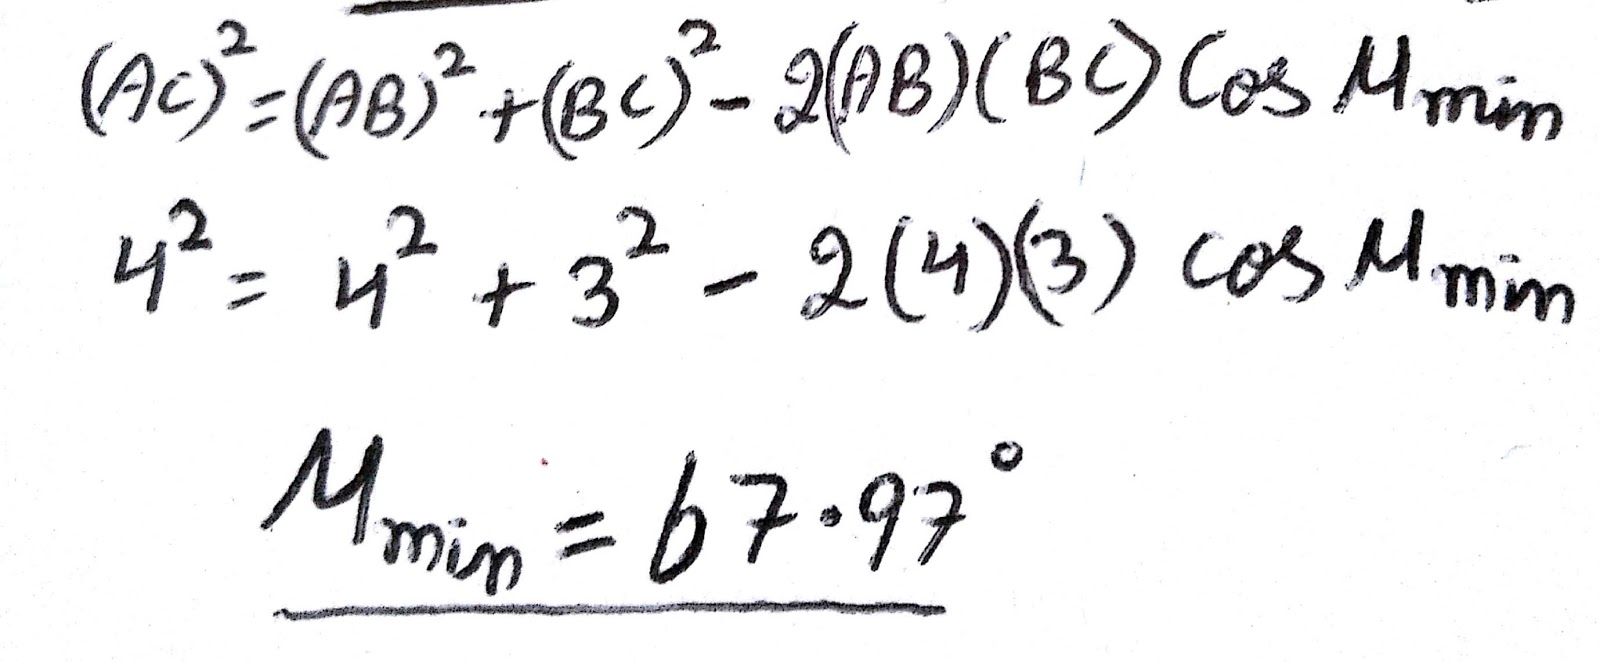 (AC)² = (AB)² + (BC)² - 2(AB)(BC) Cos Mmin
4² = 4² + 3² - 2(4)(3) cos Mmin
Mmin = 67.97°